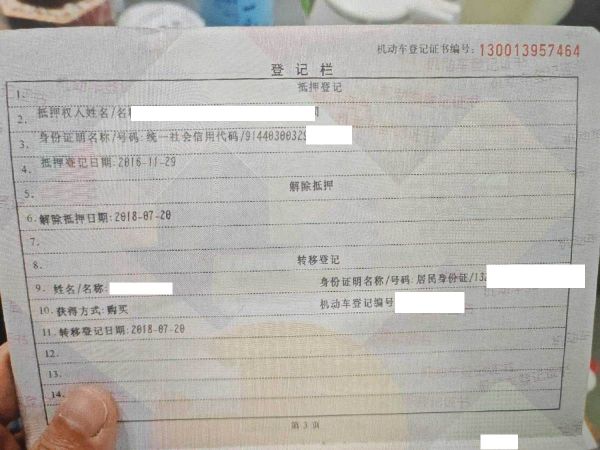 机动车登记证书编号: 130013957464
登 记 栏
1. 抵押登记
2. 抵押权人姓名/名
3. 身份证明名称/号码:统一社会信用代码/91440300329
4. 抵押登记日期:2016-11-29
5. 解除抵押
6. 解除抵押日期:2018-07-20
7.
8. 转移登记
9. 姓名/名称: 身份证明名称/号码:居民身份证/132
10. 获得方式:购买 机动车登记编号
11. 转移登记日期:2018-07-20
12.
13.
14.
第 3 页